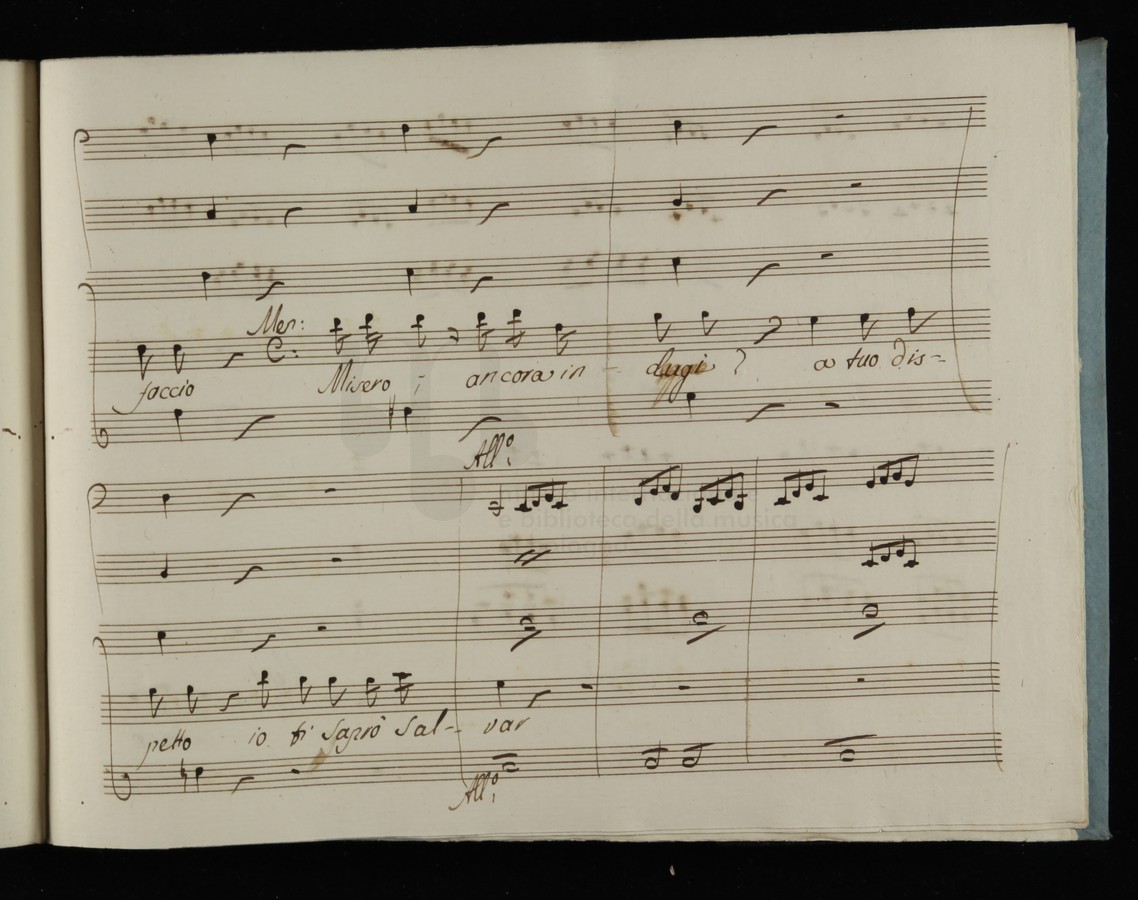 Men:
faccio Misero ; ancora in - dugi ? a tuo dis-
All.º
museo internazionale
e biblioteca della musica
petto io ti saprò Sal- var
All.º